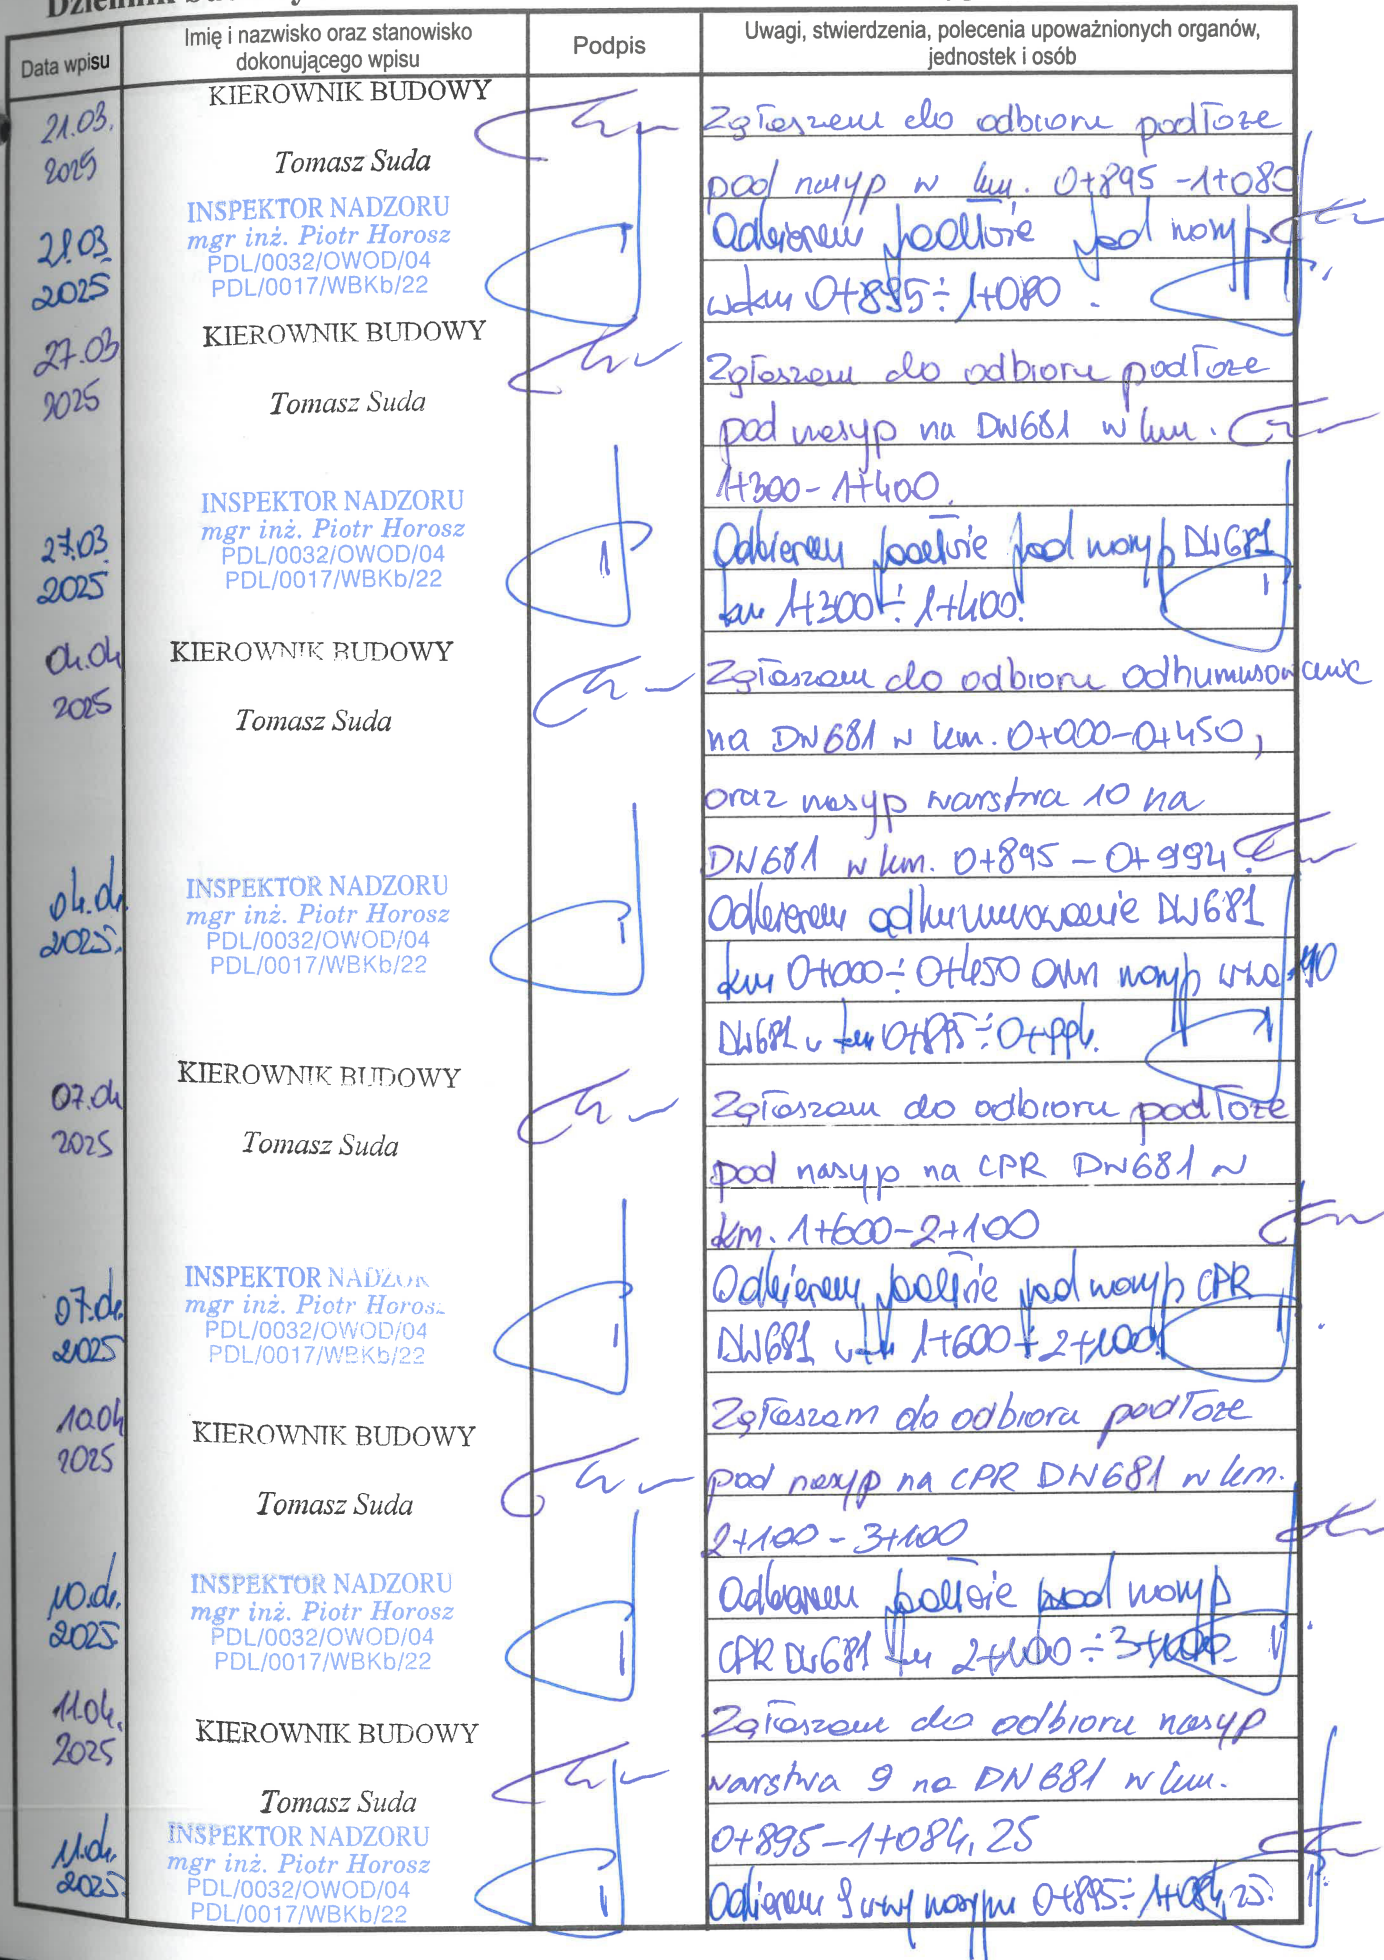 Data wpisu
Imię i nazwisko oraz stanowisko
dokonującego wpisu
Podpis
Uwagi, stwierdzenia, polecenia upoważnionych organów,
jednostek i osób
21.03.
2025
KIEROWNIK BUDOWY
Tomasz Suda
Zgłaszam do odbioru podłoże
pod nasyp w km. 0+895 -1+080
21.03
2025
INSPEKTOR NADZORU
mgr inż. Piotr Horosz
PDL/0032/OWOD/04
PDL/0017/WBKb/22
Odbieram podłoże pod nasyp
w km 0+895÷1+080.
27.03
2025
KIEROWNIK BUDOWY
Tomasz Suda
Zgłaszam do odbioru podłoże
pod nasyp na DW681 w km.
1+300-1+400.
27.03
2025
INSPEKTOR NADZORU
mgr inż. Piotr Horosz
PDL/0032/OWOD/04
PDL/0017/WBKb/22
Odbieram podłoże pod nasyp DW681
km 1+300÷1+400.
04.04
2025
KIEROWNIK BUDOWY
Tomasz Suda
Zgłaszam do odbioru odhumusowanie
na DW681 w km. 0+000-0+450,
oraz nasyp warstwa 10 na
DW681 w km. 0+895 - 0+994.
04.04
2025.
INSPEKTOR NADZORU
mgr inż. Piotr Horosz
PDL/0032/OWOD/04
PDL/0017/WBKb/22
Odbieram odhumusowanie DW681
km 0+000÷0+450 oraz nasyp 10
DW681 w km 0+895÷0+994.
07.04
2025
KIEROWNIK BUDOWY
Tomasz Suda
Zgłaszam do odbioru podłoże
pod nasyp na CPR DW681 w
km. 1+600-2+100
07.04.
2025
INSPEKTOR NADZOR
mgr inż. Piotr Horosz
PDL/0032/OWOD/04
PDL/0017/WBKb/22
Odbieram podłoże pod nasyp CPR
DW681 w km 1+600÷2+100.
10.04
2025
KIEROWNIK BUDOWY
Tomasz Suda
Zgłaszam do odbioru podłoże
pod nasyp na CPR DW681 w km.
2+100-3+100
10.04.
2025
INSPEKTOR NADZORU
mgr inż. Piotr Horosz
PDL/0032/OWOD/04
PDL/0017/WBKb/22
Odbieram podłoże pod nasyp
CPR DW681 km 2+100÷3+100.
11.04.
2025
KIEROWNIK BUDOWY
Tomasz Suda
Zgłaszam do odbioru nasyp
warstwa 9 na DW681 w km.
0+895-1+084,25
11.04.
2025
INSPEKTOR NADZORU
mgr inż. Piotr Horosz
PDL/0032/OWOD/04
PDL/0017/WBKb/22
Odbieram 9 nasypu 0+895÷1+084,25.